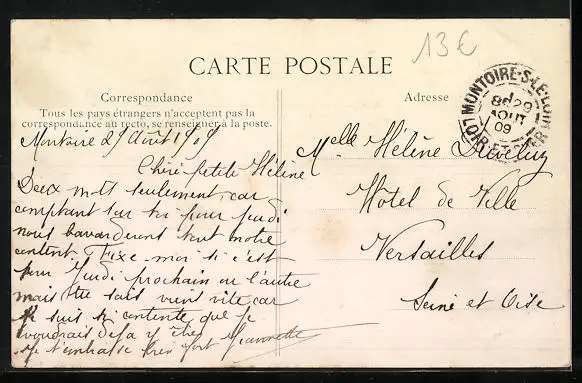 13€
CARTE POSTALE
Correspondance
Tous les pays étrangers n'acceptent pas la
correspondance au recto, se renseigner à la poste.
Adresse
MONTOIRE-S-LE-LOIR
8E 29
AOUT
09
LOIR-ET-CHER
Montoire 29 Août 1909
Chère petite Hélène
Deux mots seulement, car
comptant sur toi pour jeudi
nous bavarderons tout notre
content. Fixe-moi si c'est
pour Jeudi prochain ou l'autre
mais tu sais viens vite car
je suis si contente que je
voudrais déjà y être
Je t'embrasse bien fort Jeannette
Melle Hélène
Hôtel de Ville
Versailles
Seine et Oise